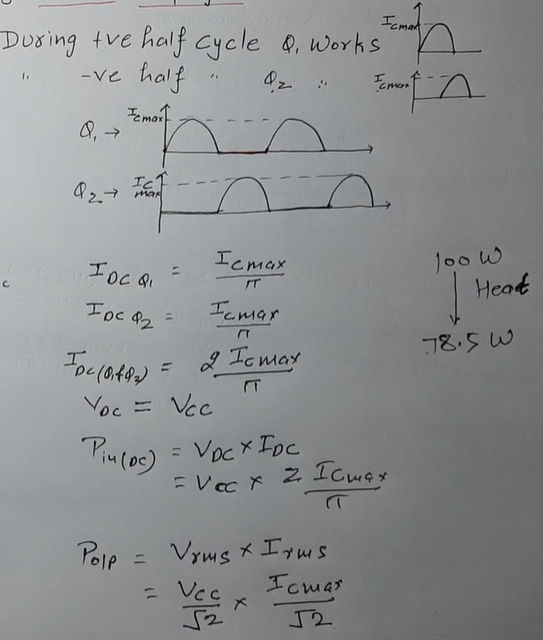 During +ve half cycle Q1 works Icmax
" -ve half " Q2 " Icmax
Q1 → Icmax
Q2 → Ic max
IDC Q1 = Icmax/π
IDC Q2 = Icmax/π
IDC(Q1&Q2) = 2 Icmax/π
VDC = Vcc
Pin(DC) = VDC × IDC
= Vcc × 2 Icmax/π
Po/p = Vrms × Irms
= Vcc/√2 × Icmax/√2
100 W
Heat
78.5 W